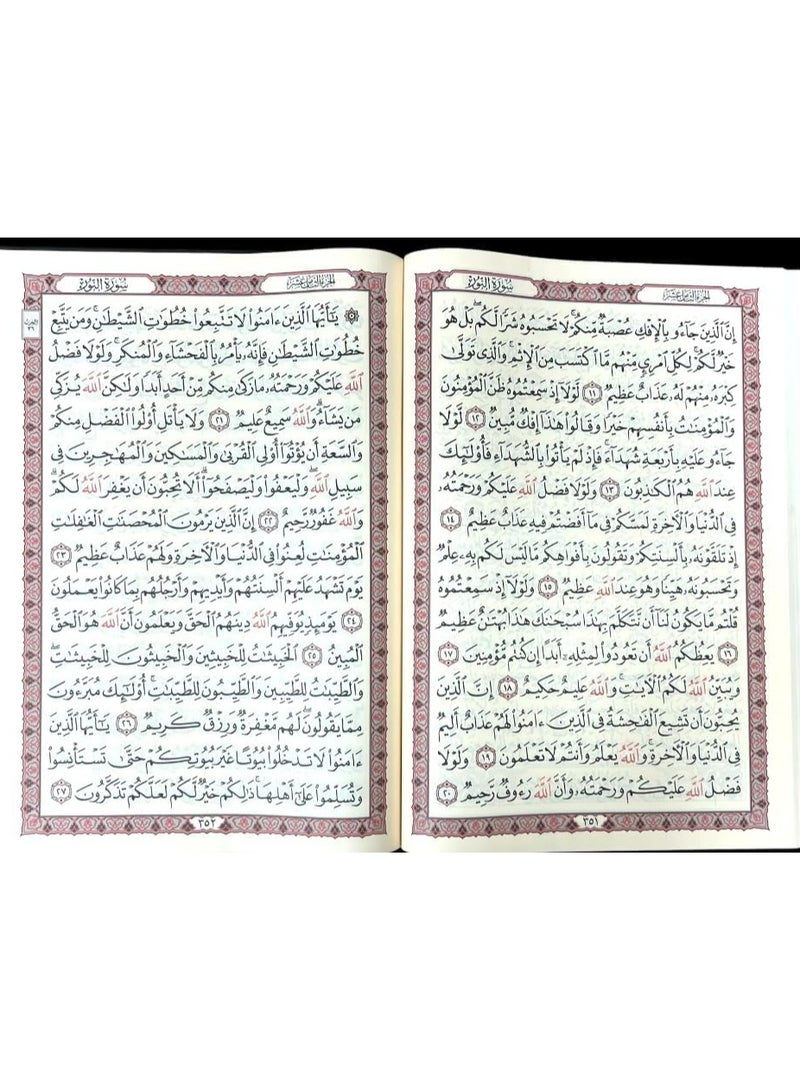 الجزء الثامن عشر
سورة النور
إِنَّ ٱلَّذِينَ جَآءُو بِٱلْإِفْكِ عُصْبَةٌ مِّنكُمْ ۚ لَا تَحْسَبُوهُ شَرًّا لَّكُم ۖ بَلْ هُوَ
خَيْرٌ لَّكُمْ ۚ لِكُلِّ ٱمْرِئٍ مِّنْهُم مَّا ٱكْتَسَبَ مِنَ ٱلْإِثْمِ ۚ وَٱلَّذِى تَوَلَّىٰ
كِبْرَهُۥ مِنْهُمْ لَهُۥ عَذَابٌ عَظِيمٌ ١١ لَّوْلَآ إِذْ سَمِعْتُمُوهُ ظَنَّ ٱلْمُؤْمِنُونَ
وَٱلْمُؤْمِنَٰتُ بِأَنفُسِهِمْ خَيْرًا وَقَالُوا۟ هَٰذَآ إِفْكٌ مُّبِينٌ ١٢ لَّوْلَا
جَآءُو عَلَيْهِ بِأَرْبَعَةِ شُهَدَآءَ ۚ فَإِذْ لَمْ يَأْتُوا۟ بِٱلشُّهَدَآءِ فَأُو۟لَٰٓئِكَ
عِندَ ٱللَّهِ هُمُ ٱلْكَٰذِبُونَ ١٣ وَلَوْلَا فَضْلُ ٱللَّهِ عَلَيْكُمْ وَرَحْمَتُهُۥ
فِى ٱلدُّنْيَا وَٱلْءَاخِرَةِ لَمَسَّكُمْ فِى مَآ أَفَضْتُمْ فِيهِ عَذَابٌ عَظِيمٌ ١٤
إِذْ تَلَقَّوْنَهُۥ بِأَلْسِنَتِكُمْ وَتَقُولُونَ بِأَفْوَاهِكُم مَّا لَيْسَ لَكُم بِهِۦ عِلْمٌ
وَتَحْسَبُونَهُۥ هَيِّنًا وَهُوَ عِندَ ٱللَّهِ عَظِيمٌ ١٥ وَلَوْلَآ إِذْ سَمِعْتُمُوهُ
قُلْتُم مَّا يَكُونُ لَنَآ أَن نَّتَكَلَّمَ بِهَٰذَا سُبْحَٰنَكَ هَٰذَا بُهْتَٰنٌ عَظِيمٌ
١٦ يَعِظُكُمُ ٱللَّهُ أَن تَعُودُوا۟ لِمِثْلِهِۦٓ أَبَدًا إِن كُنتُم مُّؤْمِنِينَ ١٧
وَيُبَيِّنُ ٱللَّهُ لَكُمُ ٱلْءَايَٰتِ ۚ وَٱللَّهُ عَلِيمٌ حَكِيمٌ ١٨ إِنَّ ٱلَّذِينَ
يُحِبُّونَ أَن تَشِيعَ ٱلْفَٰحِشَةُ فِى ٱلَّذِينَ ءَامَنُوا۟ لَهُمْ عَذَابٌ أَلِيمٌ
فِى ٱلدُّنْيَا وَٱلْءَاخِرَةِ ۚ وَٱللَّهُ يَعْلَمُ وَأَنتُمْ لَا تَعْلَمُونَ ١٩ وَلَوْلَا
فَضْلُ ٱللَّهِ عَلَيْكُمْ وَرَحْمَتُهُۥ وَأَنَّ ٱللَّهَ رَءُوفٌ رَّحِيمٌ ٢٠
٣٥١
الجزء الثامن عشر
سورة النور
۞ يَٰٓأَيُّهَا ٱلَّذِينَ ءَامَنُوا۟ لَا تَتَّبِعُوا۟ خُطُوَٰتِ ٱلشَّيْطَٰنِ ۚ وَمَن يَتَّبِعْ
خُطُوَٰتِ ٱلشَّيْطَٰنِ فَإِنَّهُۥ يَأْمُرُ بِٱلْفَحْشَآءِ وَٱلْمُنكَرِ ۚ وَلَوْلَا فَضْلُ
ٱللَّهِ عَلَيْكُمْ وَرَحْمَتُهُۥ مَا زَكَىٰ مِنكُم مِّنْ أَحَدٍ أَبَدًا وَلَٰكِنَّ ٱللَّهَ يُزَكِّى
مَن يَشَآءُ ۗ وَٱللَّهُ سَمِيعٌ عَلِيمٌ ٢١ وَلَا يَأْتَلِ أُو۟لُوا۟ ٱلْفَضْلِ مِنكُمْ
وَٱلسَّعَةِ أَن يُؤْتُوٓا۟ أُو۟لِى ٱلْقُرْبَىٰ وَٱلْمَسَٰكِينَ وَٱلْمُهَٰجِرِينَ فِى
سَبِيلِ ٱللَّهِ ۖ وَلْيَعْفُوا۟ وَلْيَصْفَحُوٓا۟ ۗ أَلَا تُحِبُّونَ أَن يَغْفِرَ ٱللَّهُ لَكُمْ ۗ
وَٱللَّهُ غَفُورٌ رَّحِيمٌ ٢٢ إِنَّ ٱلَّذِينَ يَرْمُونَ ٱلْمُحْصَنَٰتِ ٱلْغَٰفِلَٰتِ
ٱلْمُؤْمِنَٰتِ لُعِنُوا۟ فِى ٱلدُّنْيَا وَٱلْءَاخِرَةِ وَلَهُمْ عَذَابٌ عَظِيمٌ ٢٣
يَوْمَ تَشْهَدُ عَلَيْهِمْ أَلْسِنَتُهُمْ وَأَيْدِيهِمْ وَأَرْجُلُهُم بِمَا كَانُوا۟ يَعْمَلُونَ
٢٤ يَوْمَئِذٍ يُوَفِّيهِمُ ٱللَّهُ دِينَهُمُ ٱلْحَقَّ وَيَعْلَمُونَ أَنَّ ٱللَّهَ هُوَ ٱلْحَقُّ
ٱلْمُبِينُ ٢٥ ٱلْخَبِيثَٰتُ لِلْخَبِيثِينَ وَٱلْخَبِيثُونَ لِلْخَبِيثَٰتِ ۖ
وَٱلطَّيِّبَٰتُ لِلطَّيِّبِينَ وَٱلطَّيِّبُونَ لِلطَّيِّبَٰتِ ۚ أُو۟لَٰٓئِكَ مُبَرَّءُونَ
مِمَّا يَقُولُونَ ۖ لَهُم مَّغْفِرَةٌ وَرِزْقٌ كَرِيمٌ ٢٦ يَٰٓأَيُّهَا ٱلَّذِينَ
ءَامَنُوا۟ لَا تَدْخُلُوا۟ بُيُوتًا غَيْرَ بُيُوتِكُمْ حَتَّىٰ تَسْتَأْنِسُوا۟
وَتُسَلِّمُوا۟ عَلَىٰٓ أَهْلِهَا ۚ ذَٰلِكُمْ خَيْرٌ لَّكُمْ لَعَلَّكُمْ تَذَكَّرُونَ ٢٧
٣٥٢